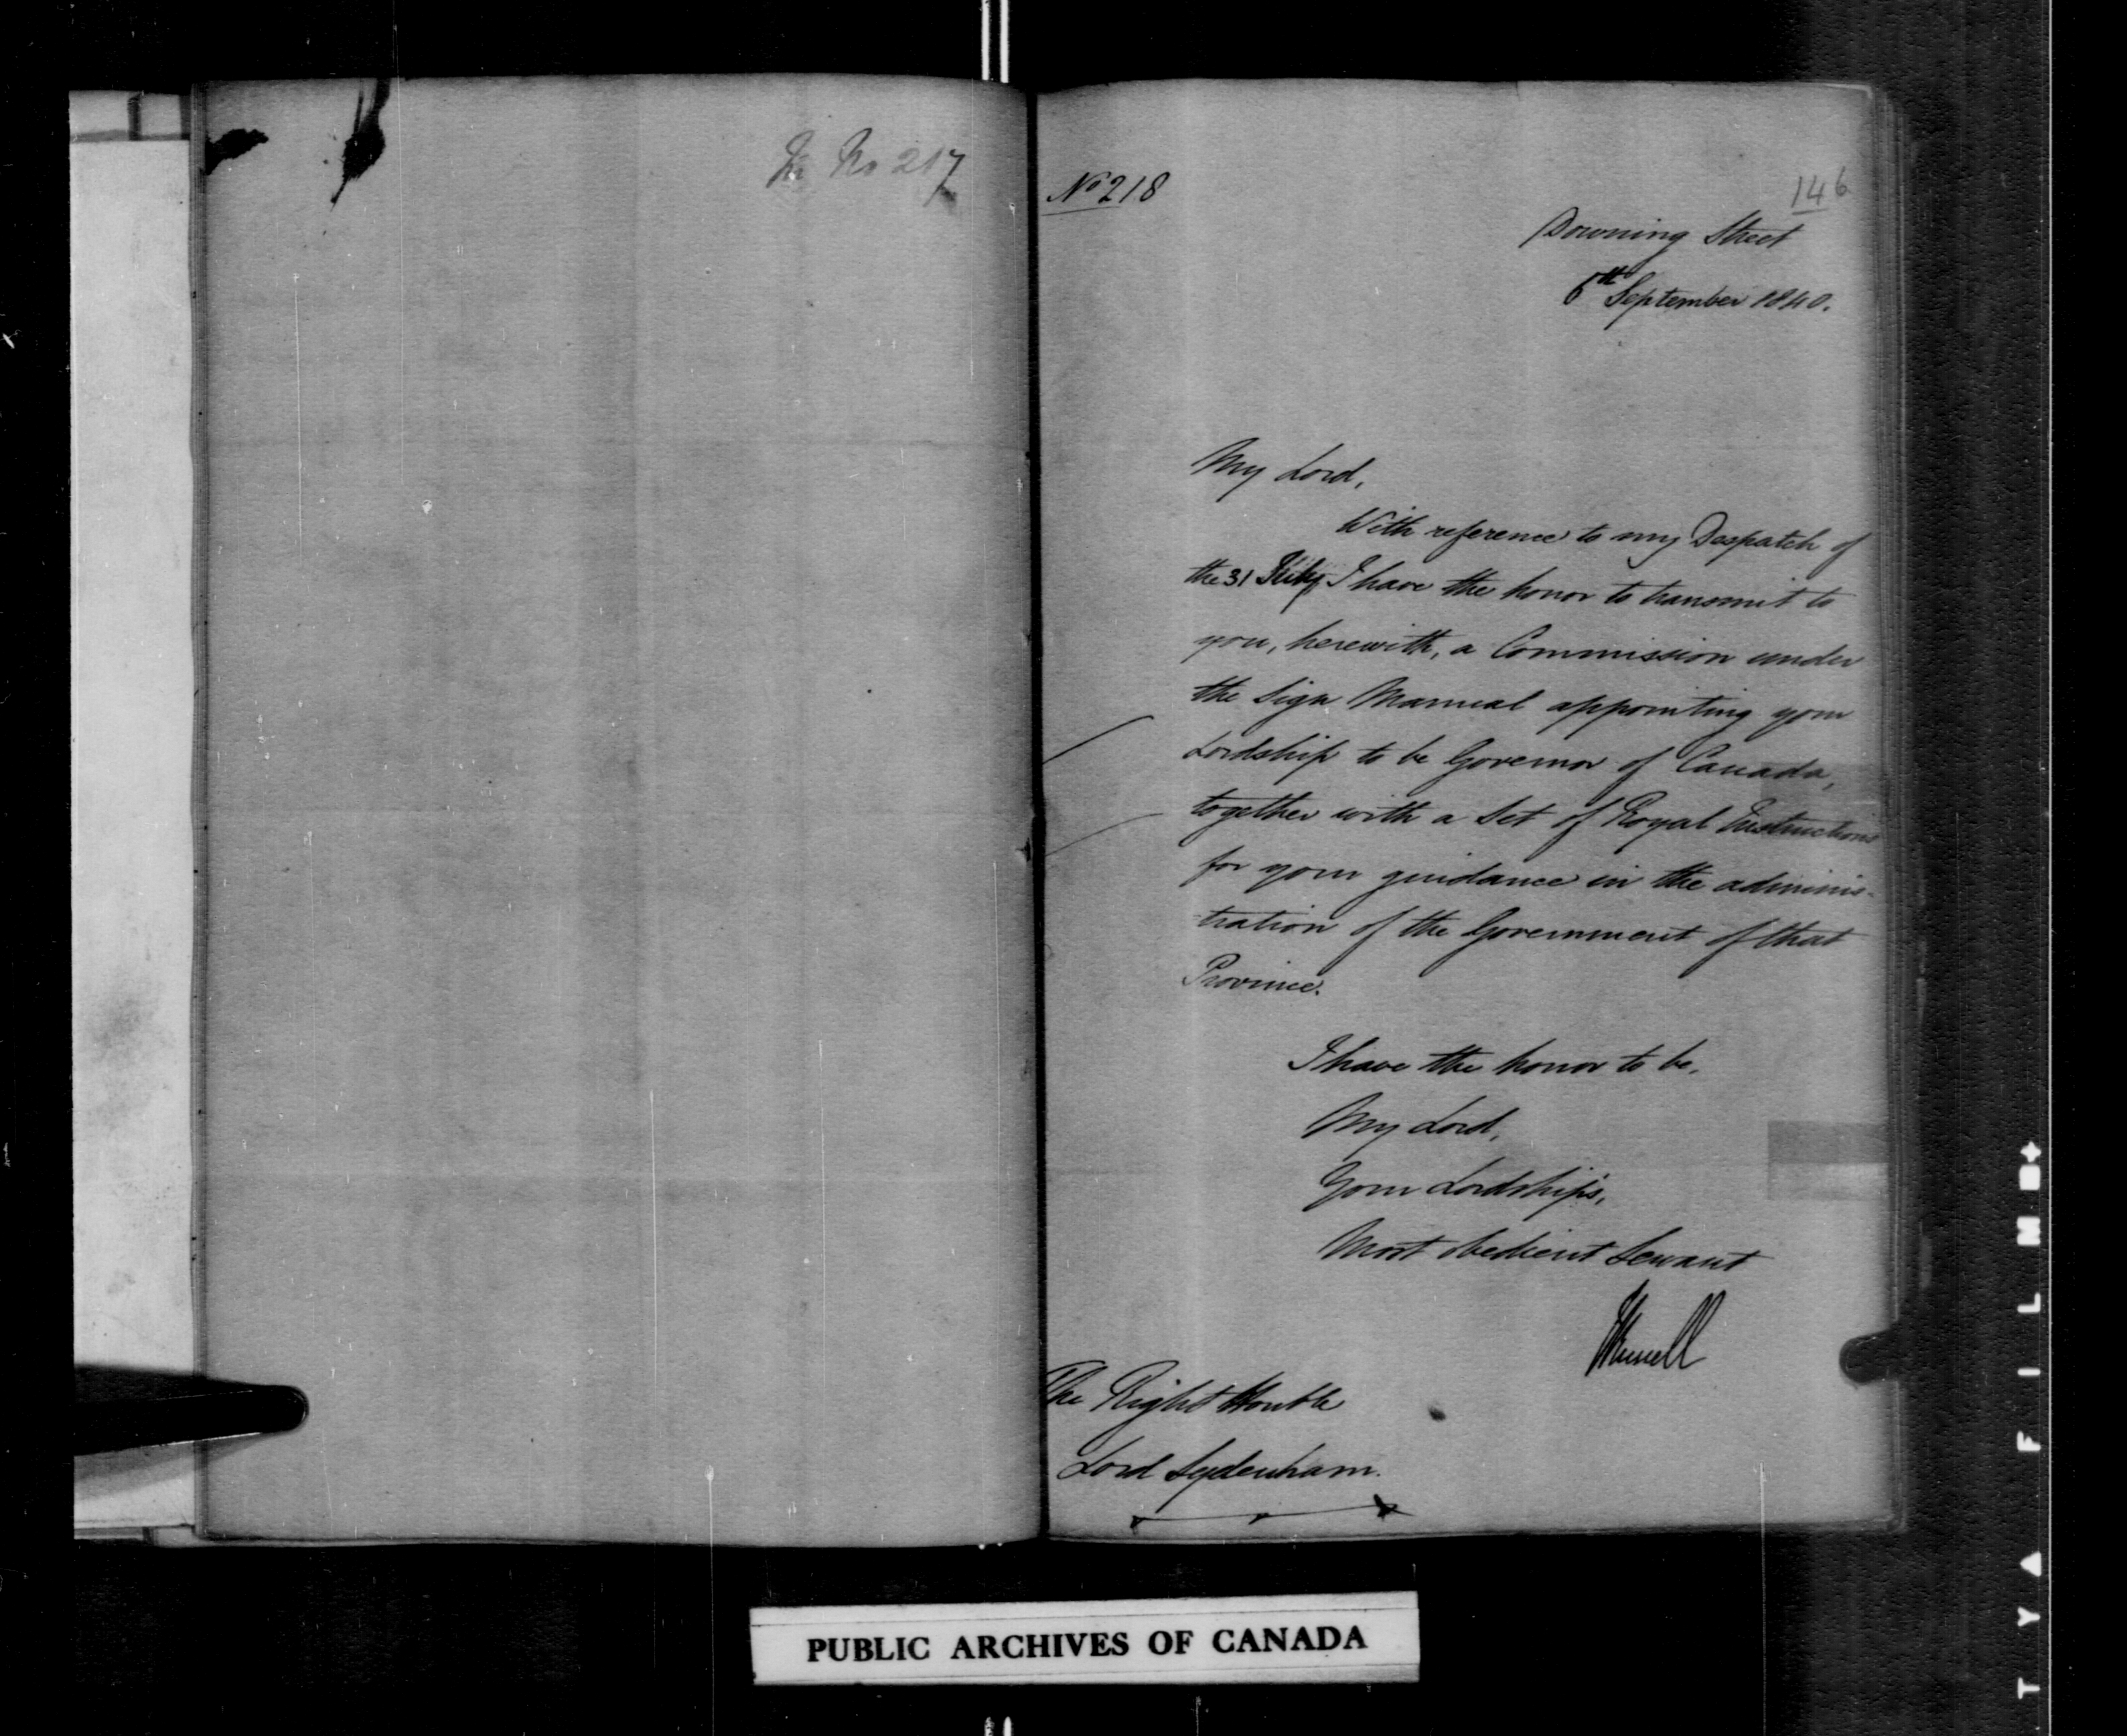 No 217
No 218
146
Downing Street
6th September 1840.
My Lord,
With reference to my Despatch of
the 31 July I have the honor to transmit to
you, herewith, a Commission under
the Sign Manual appointing your
Lordship to be Governor of Canada,
together with a Set of Royal Instructions
for your guidance in the adminis-
tration of the Government of that
Province.
I have the honor to be,
My Lord,
Your Lordship's,
Most obedient Servant
JRussell
The Right Honble
Lord Sydenham.
PUBLIC ARCHIVES OF CANADA
TYA FILM